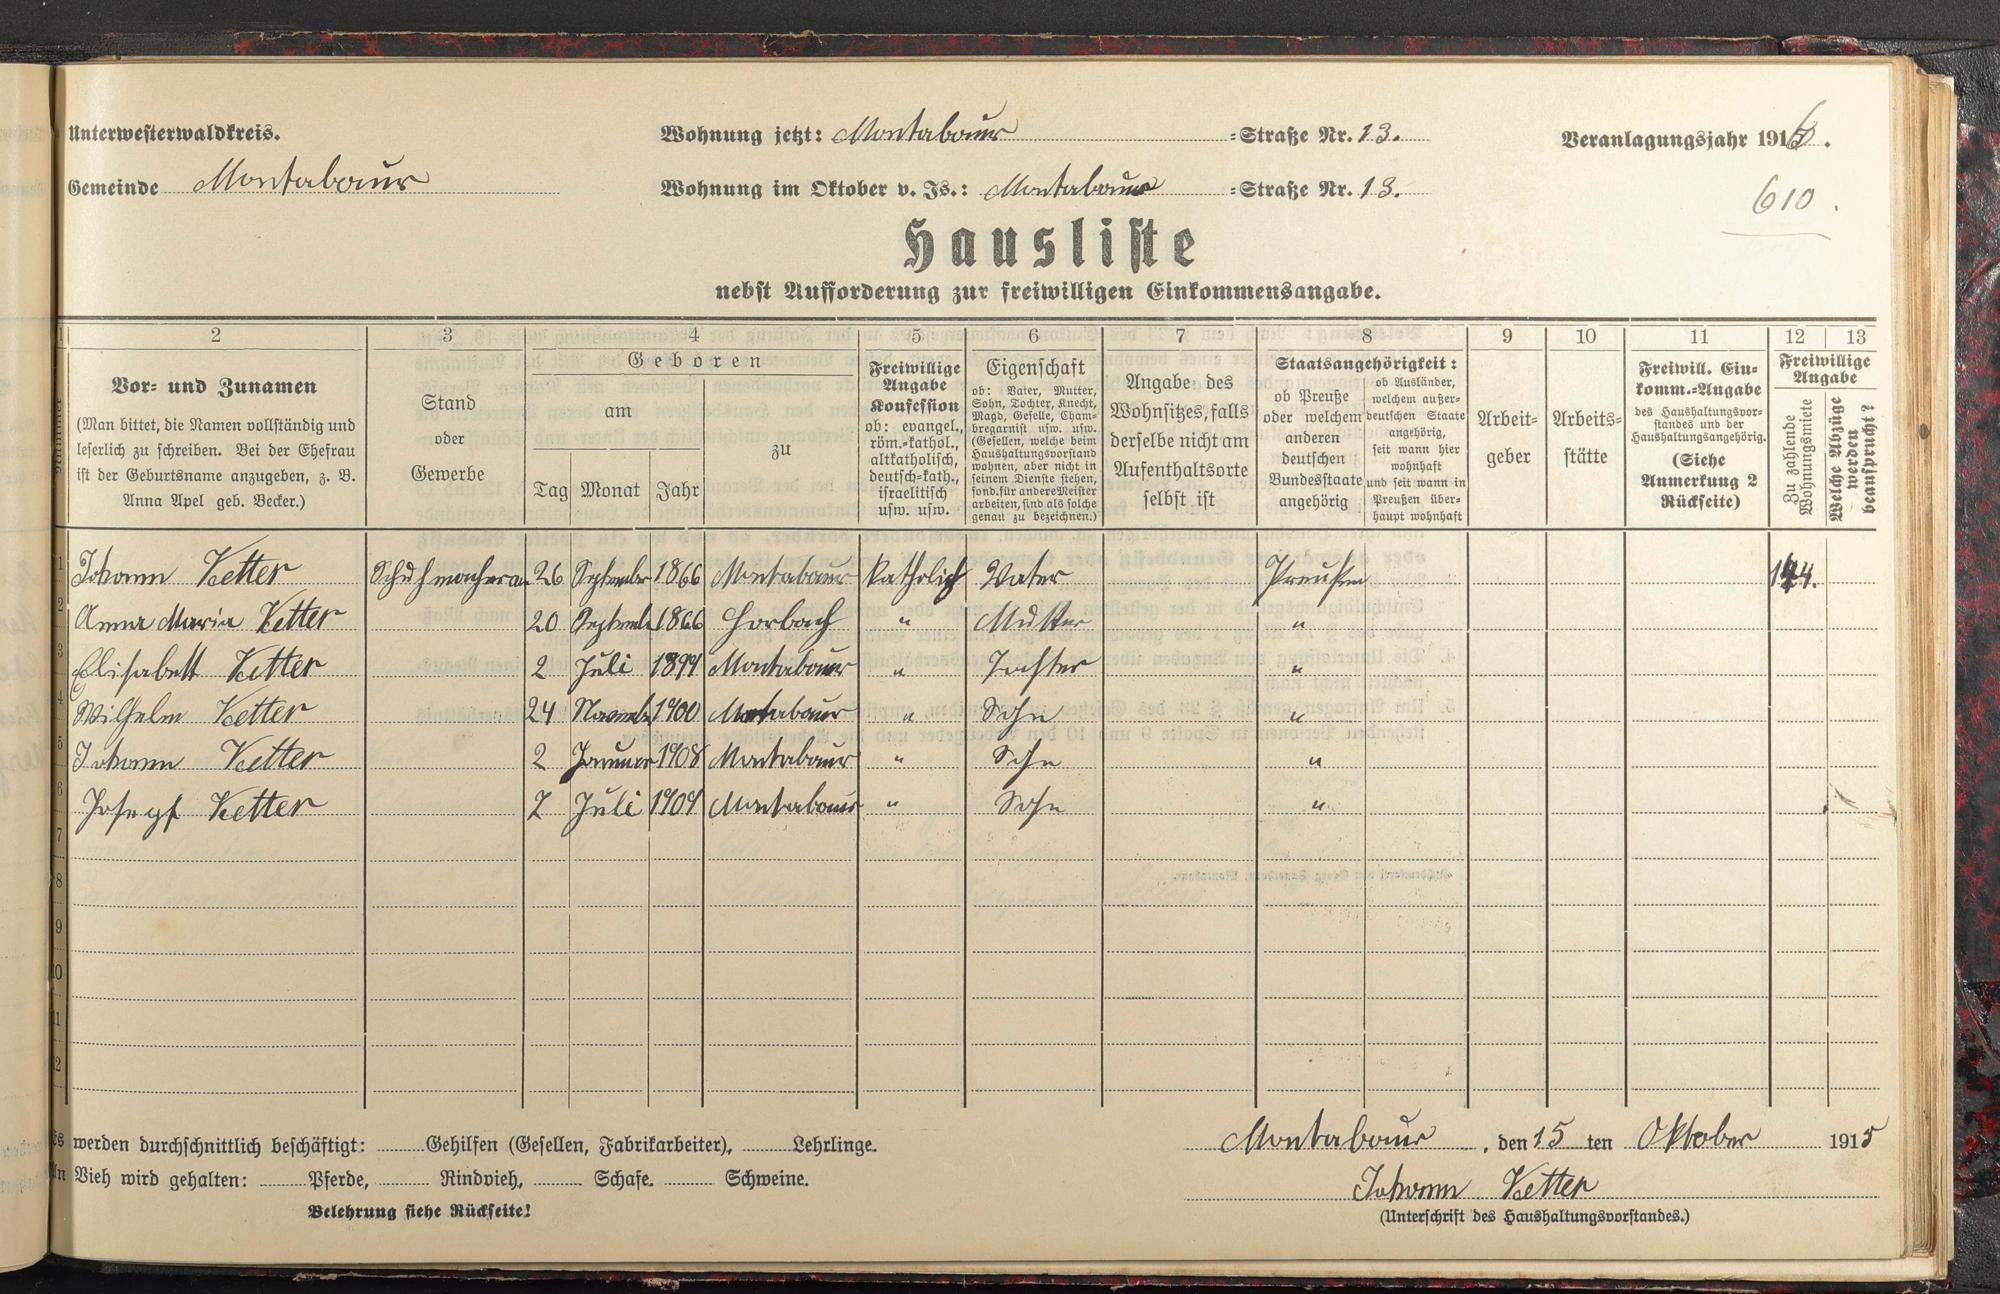 Unterwesterwaldkreis.
Wohnung jetzt: Montabaur -Straße Nr. 13.
Veranlagungsjahr 1916.
Gemeinde Montabaur
Wohnung im Oktober v. Js.: Montabaur -Straße Nr. 13.
610.
Hausliste
nebst Aufforderung zur freiwilligen Einkommensangabe.
1 2 3 4 5 6 7 8 9 10 11 12 13
Nummer
Vor- und Zunamen
(Man bittet, die Namen vollständig und
leserlich zu schreiben. Bei der Ehefrau
ist der Geburtsname anzugeben, z. B.
Anna Apel geb. Becker.)
Stand
oder
Gewerbe
Geboren
am
Tag Monat Jahr
zu
Freiwillige
Angabe
Konfession
ob: evangel.,
röm.-kathol.,
altkatholisch,
deutsch-kath.,
israelitisch
usw. usw.
Eigenschaft
ob: Vater, Mutter,
Sohn, Tochter, Knecht,
Magd, Geselle, Cham-
bregarnist usw. usw.
(Gesellen, welche beim
Haushaltungsvorstand
wohnen, aber nicht in
seinem Dienste stehen,
sond. für andere Meister
arbeiten, sind als solche
genau zu bezeichnen.)
Angabe des
Wohnsitzes, falls
derselbe nicht am
Aufenthaltsorte
selbst ist
Staatsangehörigkeit:
ob Preuße
oder welchem
anderen
deutschen
Bundesstaate
angehörig
ob Ausländer,
welchem außer-
deutschen Staate
angehörig,
seit wann hier
wohnhaft
und seit wann in
Preußen über-
haupt wohnhaft
Arbeit-
geber
Arbeits-
stätte
Freiwill. Ein-
komm.-Angabe
des Haushaltungsvor-
standes und der
Haushaltungsangehörig.
(Siehe
Anmerkung 2
Rückseite)
Freiwillige
Angabe
Zu zahlende
Wohnungsmiete
Welche Abzüge
werden
beansprucht?
1 Johann Ketter 26 September 1866 Montabaur katholisch Vater Preußen 144.
2 Anna Maria Ketter 20 September 1866 Horbach " Mutter "
3 Elisabett Ketter 2 Juli 1899 Montabaur " Tochter "
4 Wilhelm Ketter 24 November 1900 Montabaur " Sohn "
5 Johann Ketter 2 Januar 1908 Montabaur " Sohn "
6 Josepf Ketter 7 Juli 1909 Montabaur " Sohn "
7
8
9
10
11
12
Es werden durchschnittlich beschäftigt: Gehilfen (Gesellen, Fabrikarbeiter), Lehrlinge.
Montabaur, den 15 ten Oktober 1915
An Vieh wird gehalten: Pferde, Rindvieh, Schafe. Schweine.
Johann Ketter
Belehrung siehe Rückseite!
(Unterschrift des Haushaltungsvorstandes.)